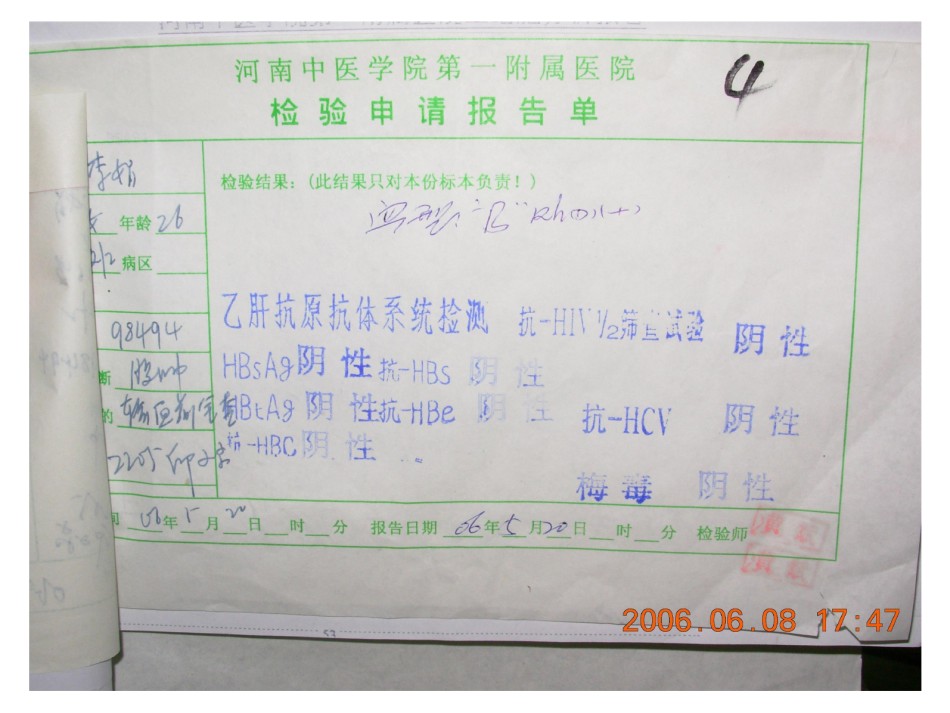 河南中医学院第一附属医院
4
检验申请报告单
李娟
检验结果:(此结果只对本份标本负责!)
女 年龄 26
血型:"B" Rh(D)(+)
病区
98494
乙肝抗原抗体系统检测 抗-HIV 1/2筛查试验 阴性
HBsAg 阴性 抗-HBs 阴性
断
的 输血前 HBtAg 阴性 抗-HBe 阴性 抗-HCV 阴性
2205
抗-HBC 阴性
梅毒 阴性
间 06年5月20日 时 分 报告日期 06年5月20日 时 分 检验师
53
2006.06.08 17:47